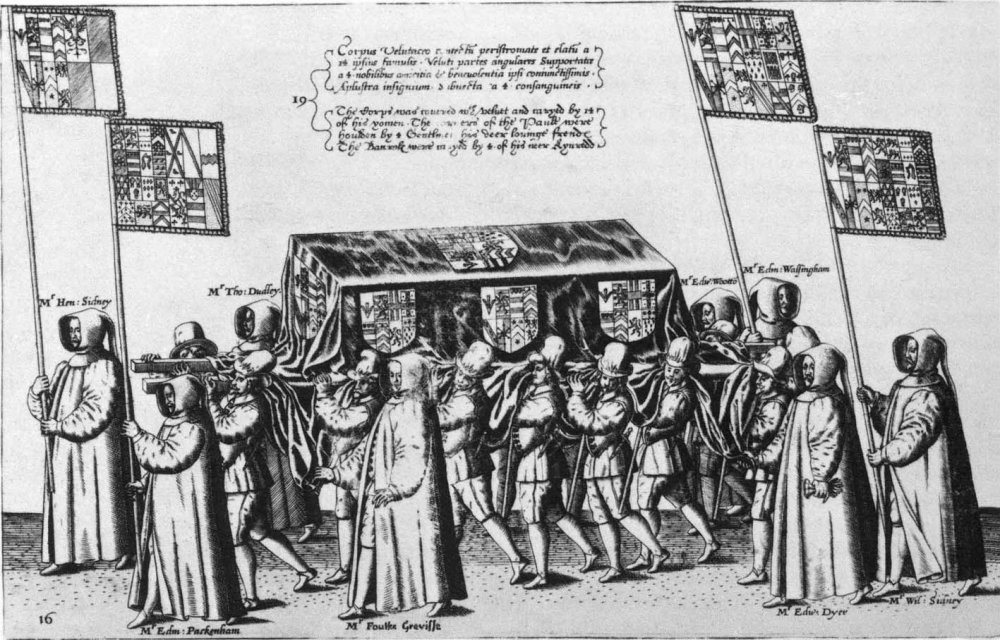 Corpus Velutaceo peristromate et elatū a
14 ipsius famulis. Veluti partes angulares Supportatæ
a 4 nobilibus amicitia & benevolentia ipsi coniunctissimis.
Aplustra insignium a 4 consanguineis.
19
The Corps was couered wth veluet and caryed by 14
of his yomen. The of the Paule were
houlden by 4 Gentlmen his deer louinge frends
The Baners were by 4 of his neer Kynredd
Mr Hen: Sidney
Mr Tho: Dudley
Mr Edw: Wotto
Mr Edm: Walsingham
16
Mr Edm: Packenham
Mr Foulke Grevisse
Mr Edw: Dyer
Mr Wil: Sidney